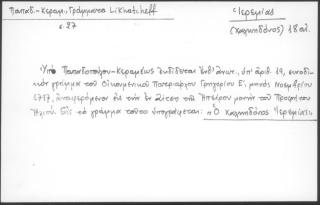 Παπαδ.-Κεραμ., Γράμματα Likhatcheff
σ. 27
Ἱερεμίας
(Χαλκηδόνος) 18 αἰ.
Ὑπὸ Παπαδοπούλου-Κεραμέως ἐκδίδεται ἐνθ' ἀνωτ., ὑπ' ἀριθ. 19, συνοδι-
κὸν γράμμα τοῦ Οἰκουμενικοῦ Πατριάρχου Γρηγορίου Ε', μηνὸς Νοεμβρίου
1797, ἀναφερόμενον εἰς τὴν ἐν τῇ Ἠπείρου μονὴν τοῦ Προφήτου
Ἠλιού. Εἰς τὸ γράμμα τοῦτο ὑπογράφεται: «Ὁ Χαλκηδόνος Ἱερεμίας».